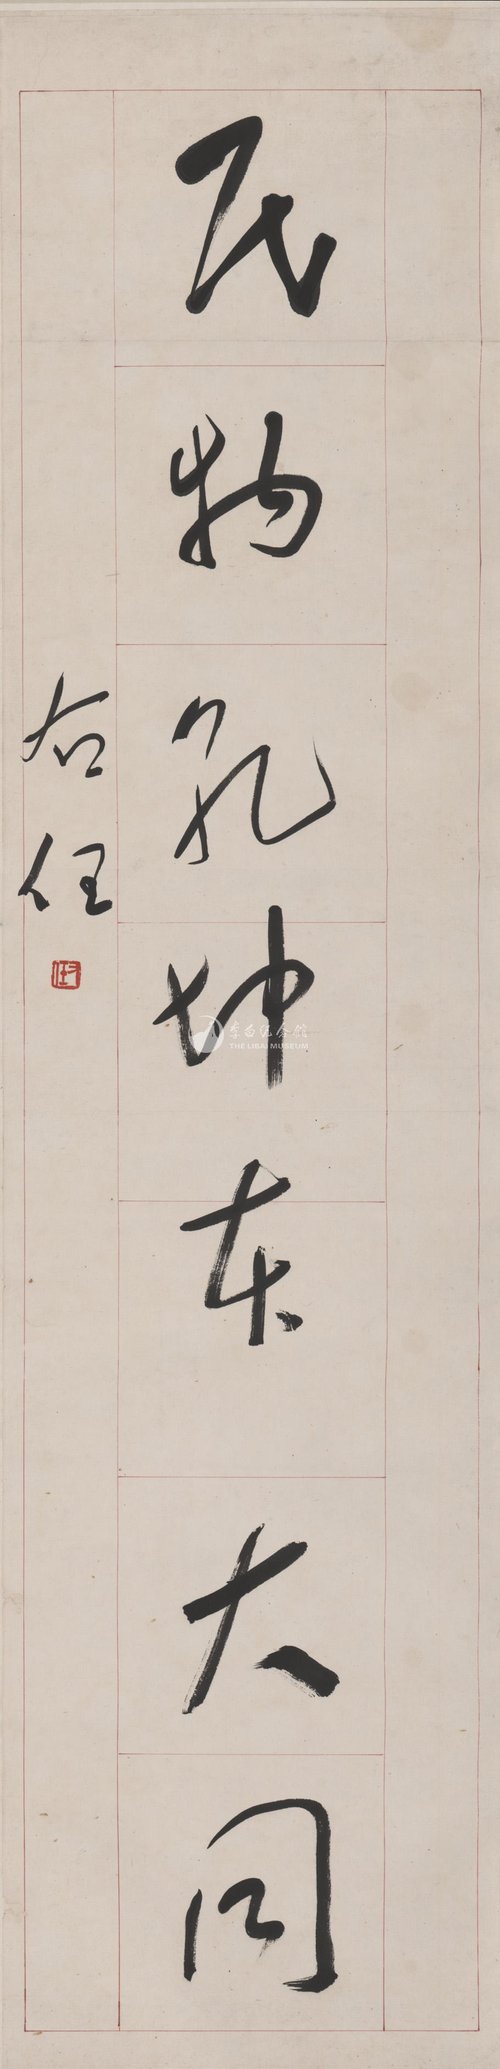 民物乾坤本大同
右任
右任
李白纪念馆
THE LIBAI MUSEUM